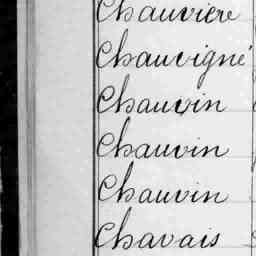 Chauvière
Chauvigné
Chauvin
Chauvin
Chauvin
Chavais